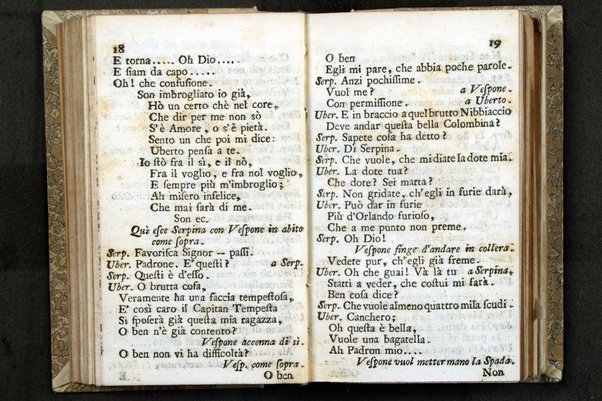 18
E torna..... Oh Dio.....
E siam da capo.....
Oh! che confusione.
Son imbrogliato io già,
Hò un certo chè nel core,
Che dir per me non sò
S'è Amore, o s'è pietà.
Sento un che poi mi dice:
Uberto pensa a te.
Io stò fra il sì, e il nò,
Fra il voglio, e fra nol voglio,
E sempre più m'imbroglio;
Ah misero infelice,
Che mai sarà di me.
Son ec.
Quì esce Serpina con Vespone in abito
come sopra.
Serp. Favorisca Signor — passi.
Uber. Padrone. E' questi? a Serp.
Serp. Questi è d'esso.
Uber. O brutta cosa,
Veramente ha una faccia tempestosa,
E' così caro il Capitan Tempesta
Si sposerà già questa mia ragazza,
O ben n'è già contento?
Vespone accenna di sì.
O ben non vi ha difficoltà?
Vesp. come sopra.
O ben
19
O ben
Egli mi pare, che abbia poche parole.
Serp. Anzi pochissime.
Vuol me? a Vespone.
Con permissione. a Uberto.
Uber. E in braccio a quel brutto Nibbiaccio
Deve andar questa bella Colombina?
Serp. Sapete cosa ha detto?
Uber. Dì Serpina.
Serp. Che vuole, che mi diate la dote mia.
Uber. La dote tua?
Che dote? Sei matta?
Serp. Non gridate, ch'egli in furie darà,
Uber. Può dar in furie
Più d'Orlando furioso,
Che a me punto non preme.
Serp. Oh Dio!
Vespone finge d'andare in collera.
Vedete pur, ch'egli già freme.
Uber. Oh che guai! Và là tu a Serpina,
Statti a veder, che costui mi farà.
Ben cosa dice?
Serp. Che vuole almeno quattro mila scudi.
Uber. Canchero;
Oh questa è bella,
Vuole una bagatella.
Ah Padron mio....
Vespone vuol metter mano la Spada.
Non